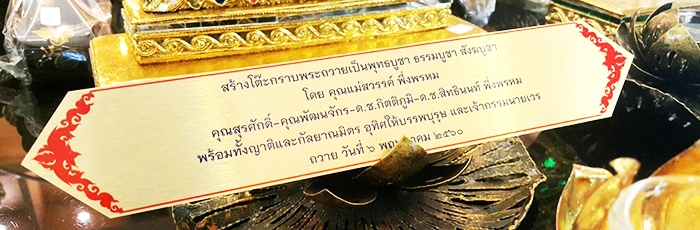 สร้างโต๊ะกราบพระถวายเป็นพุทธบูชา ธรรมบูชา สังฆบูชา
โดย คุณแม่สวรรค์ พึ่งพรหม
คุณสุรศักดิ์-คุณพัฒนจักร-ด.ช.กิตติภูมิ-ด.ช.สิทธินนท์ พึ่งพรหม
พร้อมทั้งญาติและกัลยาณมิตร อุทิศให้บรรพบุรุษ และเจ้ากรรมนายเวร
ถวาย วันที่ ๖ พฤษภาคม ๒๕๖๐